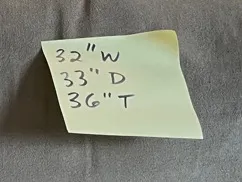 32" W
33" D
36" T